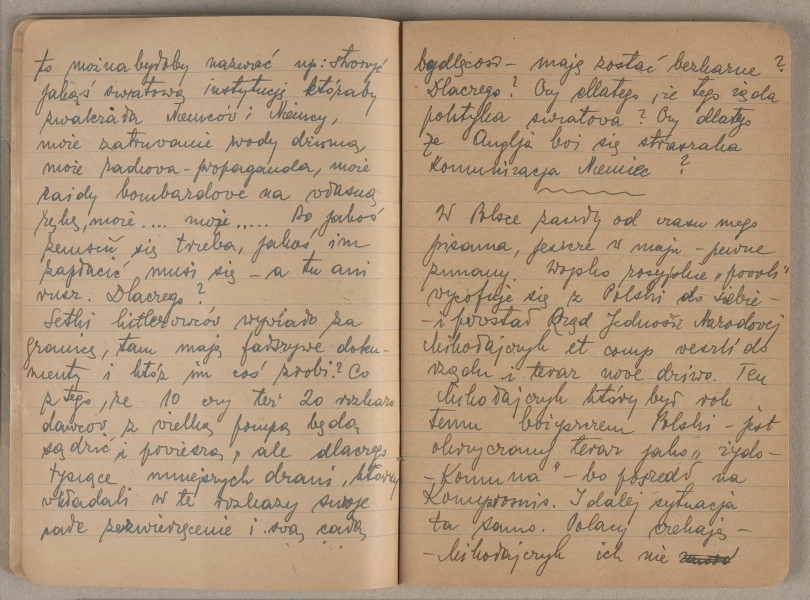 to można byłoby nazwać np: stworzyć
jakąś światową instytucję któraby
zwalczała Niemców i Niemcy,
może zatruwanie wody
może radiowa - propaganda, może
raidy bombardowe na własną
rękę, może .... może ..... Bo jakoś
zemścić się trzeba, jakoś im
zapłacić musi się - a tu ani
rusz. Dlaczego?
Setki hitlerowców wywiało za
granicę, tam mają fałszywe doku-
menty i któż im coś zrobi? Co
z tego, że 10 czy też 20 rozkazo
dawców z wielką pompą będą
sądzić i powieszą, ale dlaczego
tysiące mniejszych drani, którzy
wkładali w te rozkazy swoje
całe zezwierzęcenie i swą całą
bydlęcość - mają zostać bezkarne?
Dlaczego? Czy dlatego, że tego żąda
polityka światowa? Czy dlatego
że Anglja boi się straszaka
Komunizacja Niemiec?
W Polsce zaszły od czasu mego
pisania, jeszcze w maju - pewne
zmiany. Wojsko rosyjskie "powoli"
wycofuje się z Polski do siebie -
- i powstał Rząd Jedności Narodowej
Mikołajczyk et comp weszli do
rządu i teraz nowe dziwo. Ten
Mikołajczyk który był rok
temu bożyszczem Polski - jest
okrzyczany teraz jako "żydo-
- Komuna" - bo poszedł na
Kompromis. I dalej sytuacja
ta sama. Polacy czekają -
- Mikołajczyk ich nie